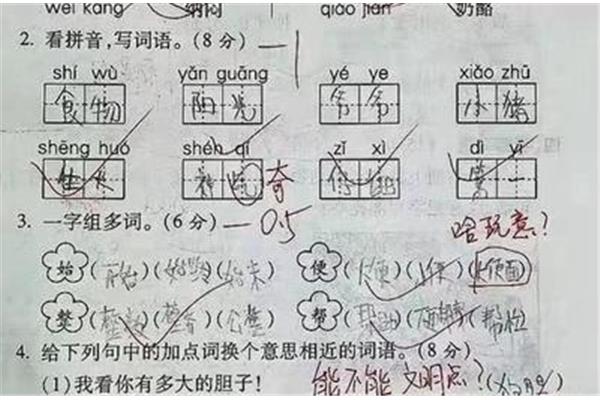 wei kang 纳闷 qiáo jiàn 奶酪
2. 看拼音，写词语。(8 分) — 1
shí wù yáng guāng yé ye xiǎo zhū
食物 阳光 爷爷 小猪
shēng huó shén qí zǐ xì dì yī
生 奇 第一
3. 一字组多词。(6 分) — 0.5 啥玩意？
始(开始)(始终)(始末) 便(大便)(小便)(大便面)
整( )( )(公整) 帮(帮助)( )( )
4. 给下列句中的加点词换个意思相近的词语。(8 分)
(1)我看你有多大的胆子！ 能不能文明点？